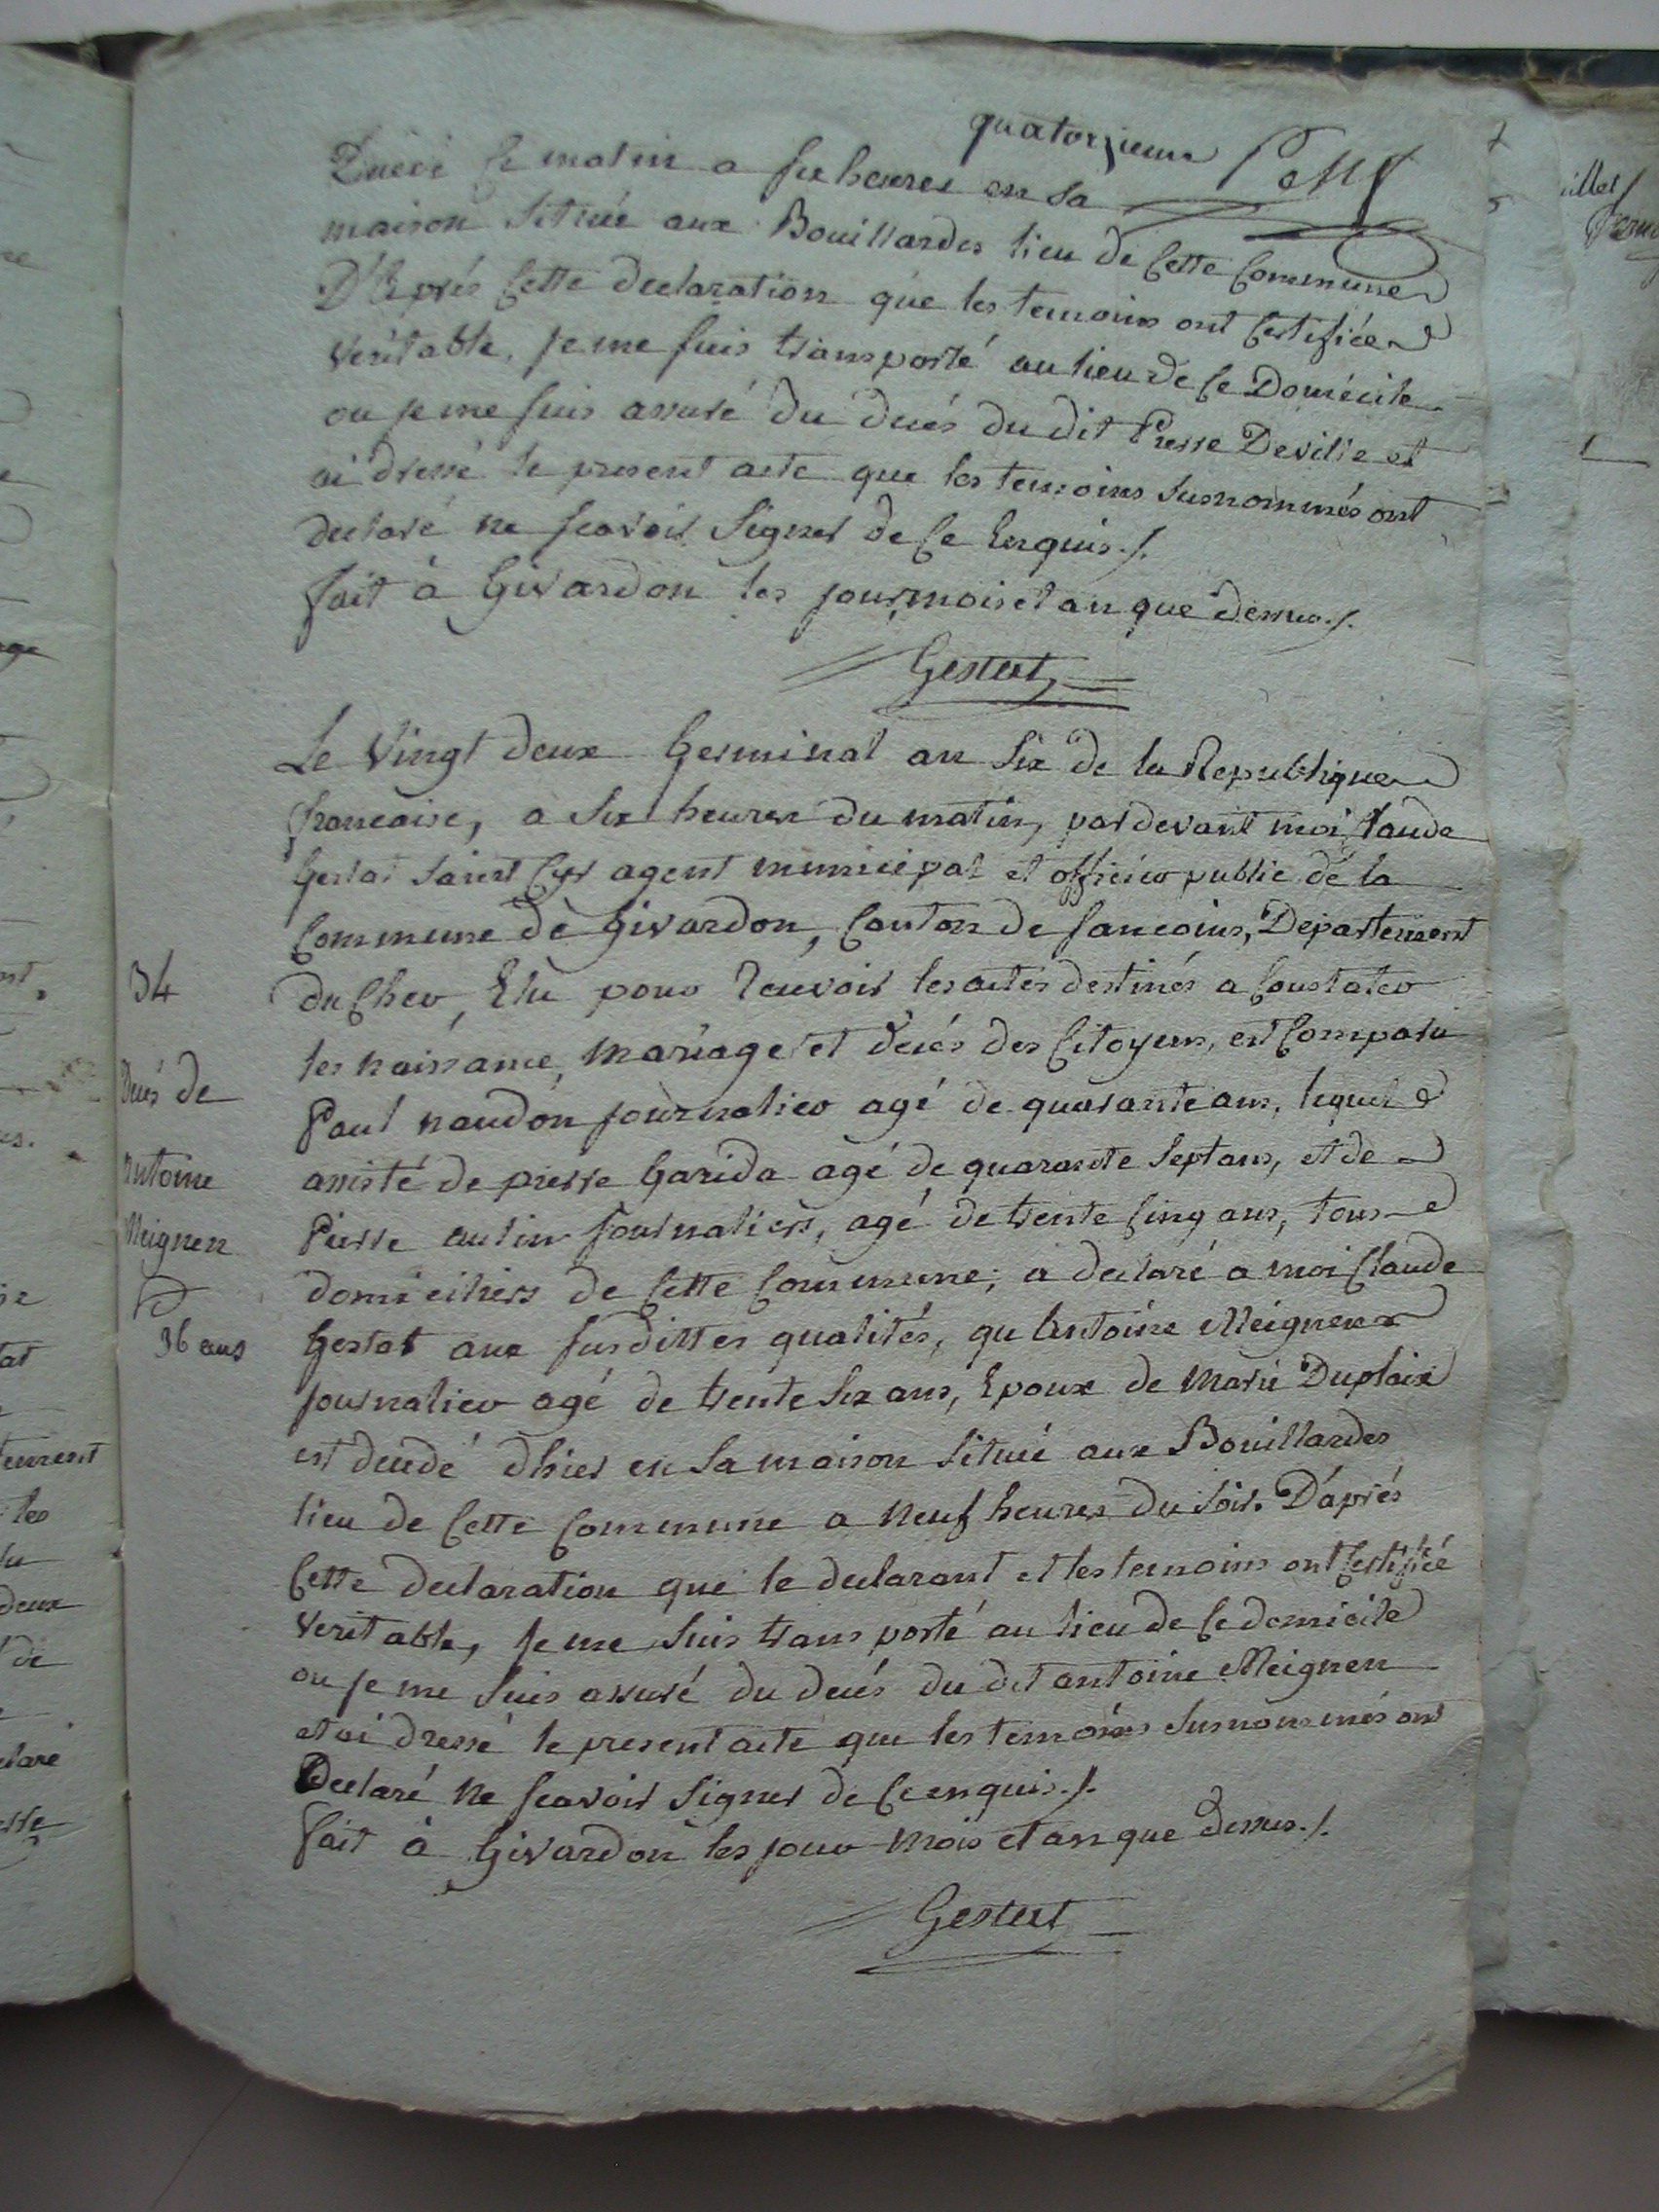 quatorzieme
Decédé Ce matin a six heures en sa
maison Située aux Bouillardes lieu de Cette Commune
D'Après Cette declaration que les temoins ont Certifiée
veritable, je me suis transporté au lieu de Ce Domicile
ou je me suis assuré du decés du dit Pierre Deville et
ai dressé le present acte que les temoins susnommés ont
declaré ne scavoir Signer de Ce Enquis./.
fait à Givardon les jour, mois et an que dessus./.
Gestat
Le Vingt deux Germinal an Six de la Republique
francaise, a Six heures du matin, pardevant moi Claude
Gestat Saint Cyr agent municipal et officier public de la
Commune de Givardon, Canton de Sancoins, Departement
du Cher, Elu pour Recevoir les actes destinés a Constater
les naissance, Mariage et decés des Citoyens, est Comparu
Paul naudon journalier agé de quarante ans, lequel
assisté de pierre Garida agé de quarante Sept ans, et de
Pierre autin journaliers, agé de trente Cinq ans, tous
domiciliers de Cette Commune; a declaré a moi Claude
Gestat aux susdittes qualités, qu'Antoine Meignen
journalier agé de trente Six ans, Epoux de Marie Duplaix
est decedé d'hier en Sa maison Située aux Bouillardes
lieu de Cette Commune a Neuf heures du Soir. D'après
Cette declaration que le declarant et les temoins ont Certifiée
veritable, je me Suis transporté au lieu de Ce domicile
ou je me Suis assuré du decés du dit antoine Meignen
et ai dressé le present acte que les temoins Susnommés ont
Declaré Ne scavoir Signer de Ce enquis./.
fait à Givardon les jour Mois et an que dessus./.
Gestat
34
Decés de
antoine
Meignen
36 ans